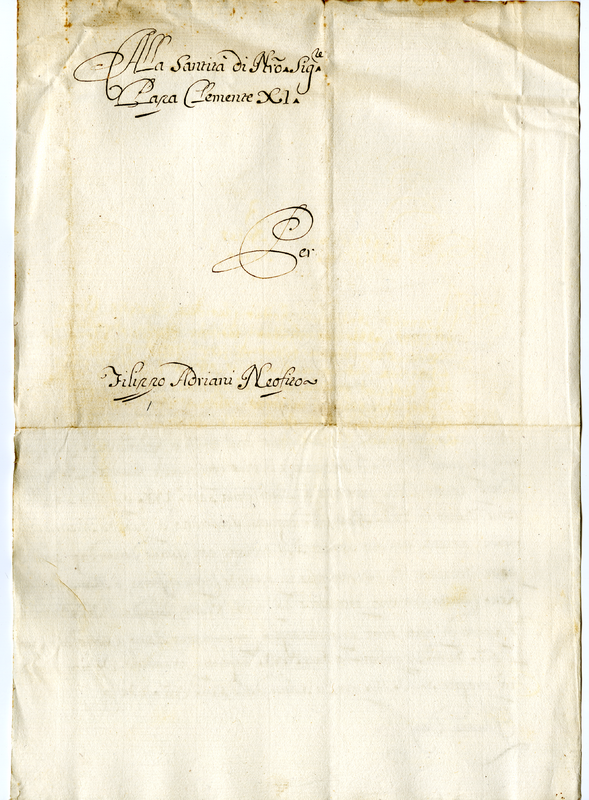 Alla Santità di Nro. Sigre.
Papa Clemente XI.
Per
Filippo Adriani Neofito